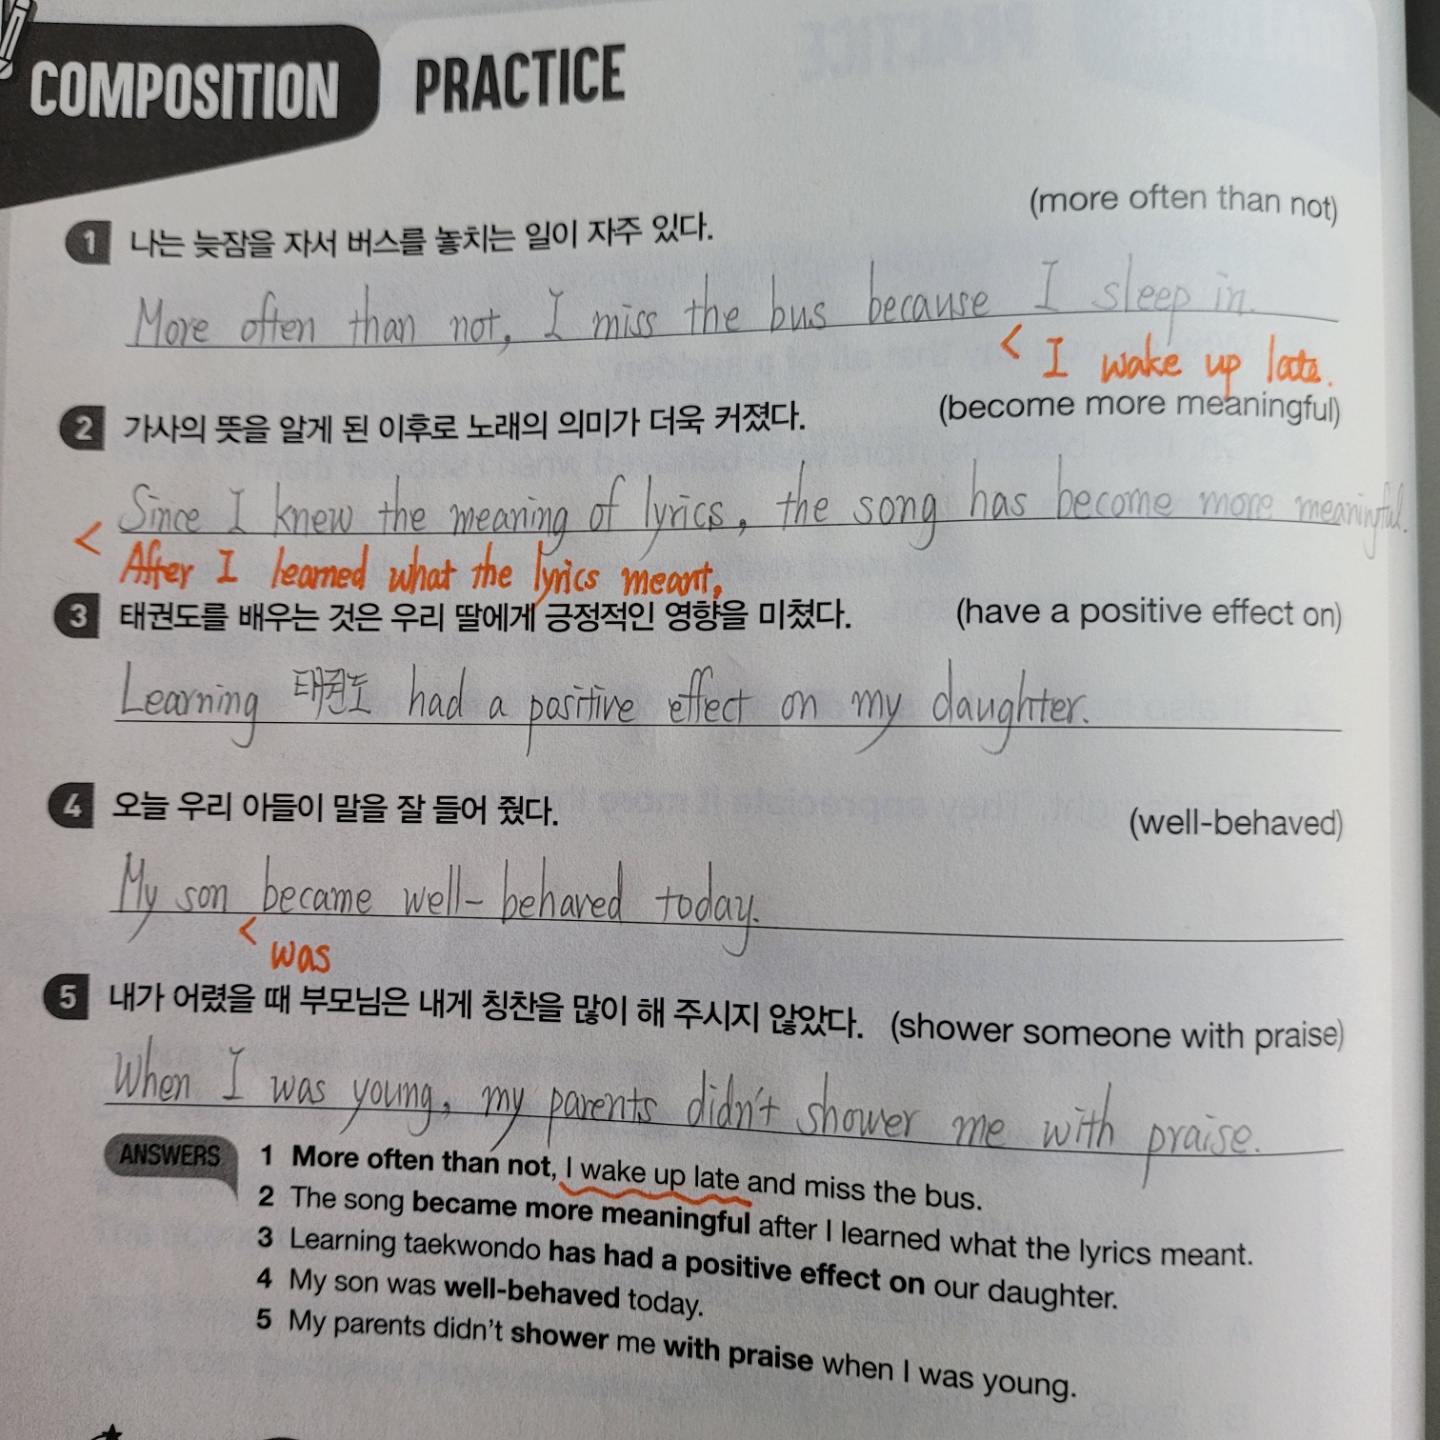 COMPOSITION PRACTICE
(more often than not)
1 나는 늦잠을 자서 버스를 놓치는 일이 자주 있다.
More often than not, I miss the bus because I sleep in.
< I wake up late.
2 가사의 뜻을 알게 된 이후로 노래의 의미가 더욱 커졌다. (become more meaningful)
Since I knew the meaning of lyrics, the song has become more meaningful.
< After I learned what the lyrics meant,
3 태권도를 배우는 것은 우리 딸에게 긍정적인 영향을 미쳤다. (have a positive effect on)
Learning 태권도 had a positive effect on my daughter.
4 오늘 우리 아들이 말을 잘 들어 줬다. (well-behaved)
My son became well-behaved today.
< was
5 내가 어렸을 때 부모님은 내게 칭찬을 많이 해 주시지 않았다. (shower someone with praise)
When I was young, my parents didn't shower me with praise.
ANSWERS 1 More often than not, I wake up late and miss the bus.
2 The song became more meaningful after I learned what the lyrics meant.
3 Learning taekwondo has had a positive effect on our daughter.
4 My son was well-behaved today.
5 My parents didn't shower me with praise when I was young.